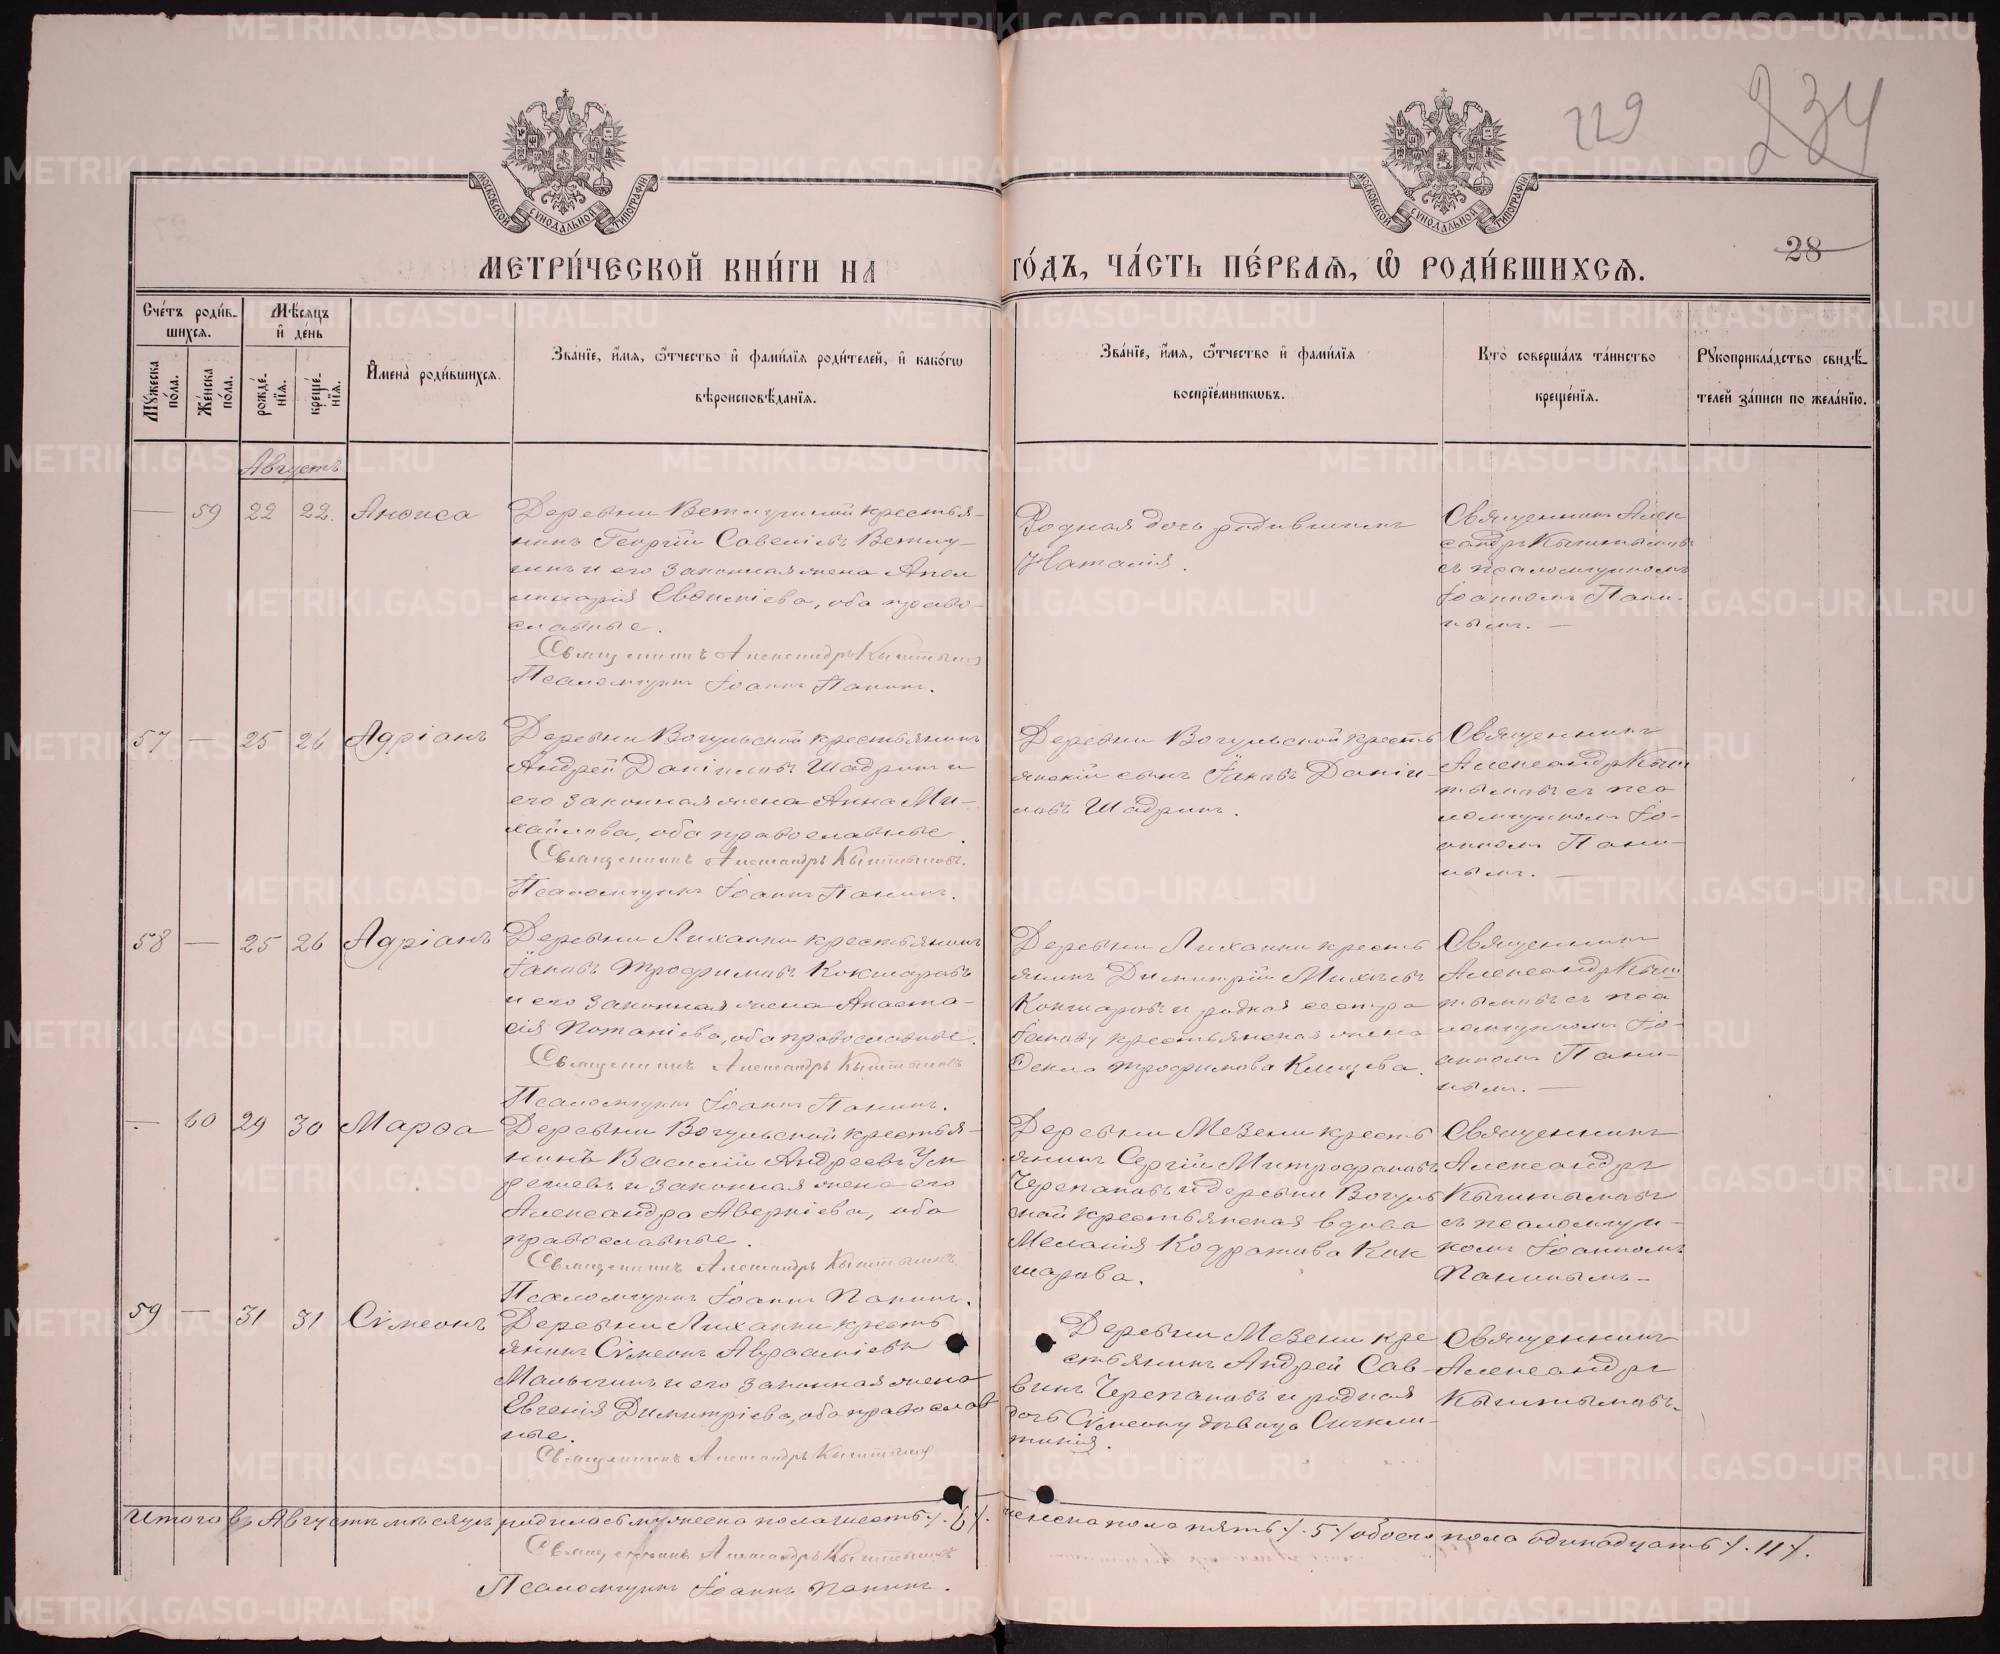 229
234
28
МОСКОВСКОЙ СУНОДАЛЬНОЙ ТИПОГРАФІИ
МОСКОВСКОЙ СУНОДАЛЬНОЙ ТИПОГРАФІИ
МЕТРИ́ЧЕСКОЙ КНИ́ГИ НА
ГО́ДЪ, ЧА́СТЬ ПЕ́РВАѦ, Ѡ҆ РОДИ́ВШИХСѦ.
Сче́тъ роди́в-
шихсѧ.
Мꙋ́жеска по́ла.
Же́нска по́ла.
Мѣ́сѧцъ
и҆ де́нь
рожде́-
нїѧ.
креще́-
нїѧ.
И҆мена̀ роди́вшихсѧ.
Зва́нїе, и҆́мѧ, ѻ҆́тчество и҆ фами́лїѧ роди́телей, и҆ како́гѡ
вѣроисповѣ́данїѧ.
Зва́нїе, и҆́мѧ, ѻ҆́тчество и҆ фами́лїѧ
воспрїе́мникѡвъ.
Кто̀ соверша́лъ та́инство
креще́нїѧ.
Рꙋкоприкла́дство свидѣ́-
телей за́писи по жела́нїю.
Августъ
— 59 22 22. Анѳиса
Деревни Ветлугиной крестья-
нинъ Георгій Савеліевъ Ветлу-
гинъ и его законная жена Апол
линарія Евѳиміева, оба право-
славные.
Священникъ Александръ Кыштымовъ
Псаломщикъ Іоаннъ Панинъ.
Родная дочь родившимъ
Наталія.
Священникъ Алек
сандръ Кыштымовъ
съ псаломщикомъ
Іоанномъ Пани-
нымъ. —
57 — 25 26 Адріанъ
Деревни Вогульской крестьянинъ
Андрей Даніиловъ Шадринъ и
его законная жена Анна Ми-
хайлова, оба православные.
Священникъ Александръ Кыштымовъ.
Псаломщикъ Іоаннъ Панинъ.
Деревни Вогульской кресть
янскій сынъ Іаковъ Даніи-
ловъ Шадринъ.
Священникъ
Александръ Кыш
тымовъ съ пса
ломщикомъ Іо-
анномъ Пани-
нымъ. —
58 — 25 26 Адріанъ
Деревни Лиханки крестьянинъ
Іаковъ Трофимовъ Кокшаровъ
и его законная жена Анаста-
сія Потапіева, оба православные.
Священникъ Александръ Кыштымовъ
Псаломщикъ Іоаннъ Панинъ.
Деревни Лиханки кресть
янинъ Димитрій Михѣевъ
Кокшаровъ и родная сестра
Іакову крестьянская жена
Ѳекла Трофимова Клещева.
Священникъ
Александръ Кыш
тымовъ съ пса
ломщикомъ Іо-
анномъ Пани-
нымъ. —
— 60 29 30 Марѳа
Деревни Вогульской крестья-
нинъ Василій Андреевъ
и законная жена его
Александра Аверкіева, оба
православные.
Священникъ Александръ Кыштымовъ
Псаломщикъ Іоаннъ Панинъ.
Деревни Мезени кресть
янинъ Сергій Митрофановъ
Черепановъ и деревни Вогуль
ской крестьянская вдова
Меланія Кодратова Кок
шарова.
Священникъ
Александръ
Кыштымовъ
съ псаломщи-
комъ Іоанномъ
Панинымъ —
59 — 31 31 Сѵмеонъ
Деревни Лиханки кресть
янинъ Сѵмеонъ Авраміевъ
Малыгинъ и его законная жена
Евгенія Димитріева, оба православ
ные.
Священникъ Александръ Кыштымовъ
Деревни Мезени кре
стьянинъ Андрей Сав-
винъ Черепановъ и родная
дочь Сѵмеону дѣвица Сигкли-
тикія.
Священникъ
Александръ
Кыштымовъ.
Итого въ Августѣ мѣсяцѣ родилось мужеска пола шесть /. 6 /. женска пола пять /. 5 / обоего пола одинадцать /. 11 /.
Священникъ Александръ Кыштымовъ
Псаломщикъ Іоаннъ Панинъ.
METRIKI.GASO-URAL.RU